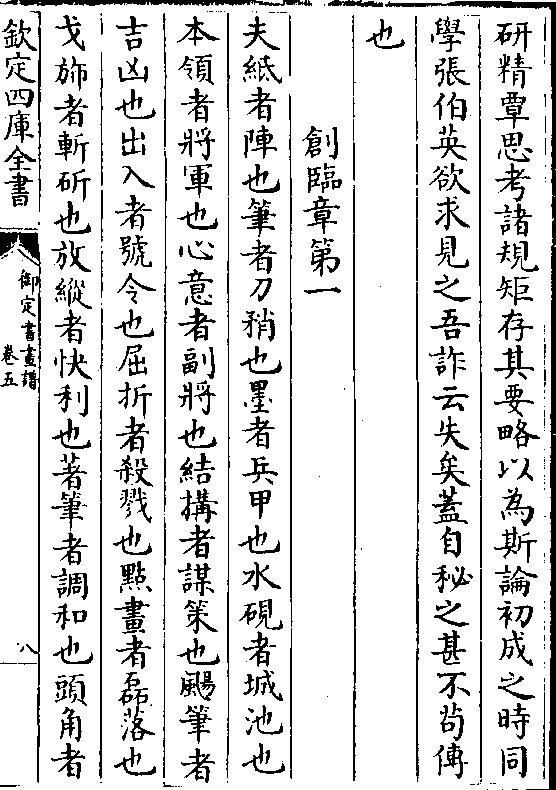 研精覃思考諸規矩存其要略以為斯論初成之時同
學張伯英欲求見之吾詐云失矣蓋自秘之甚不茍傳
也
創臨章第一
夫紙者陣也筆者刀矟也墨者兵甲也水硯者城池也
本領者將軍也心意者副將也結搆者謀策也颺筆者
吉凶也出入者號令也屈折者殺戮也點畫者磊落也
戈斾者斬斫也放縱者快利也著筆者調和也頭角者
欽定四庫全書
御定書畫譜
卷五
八